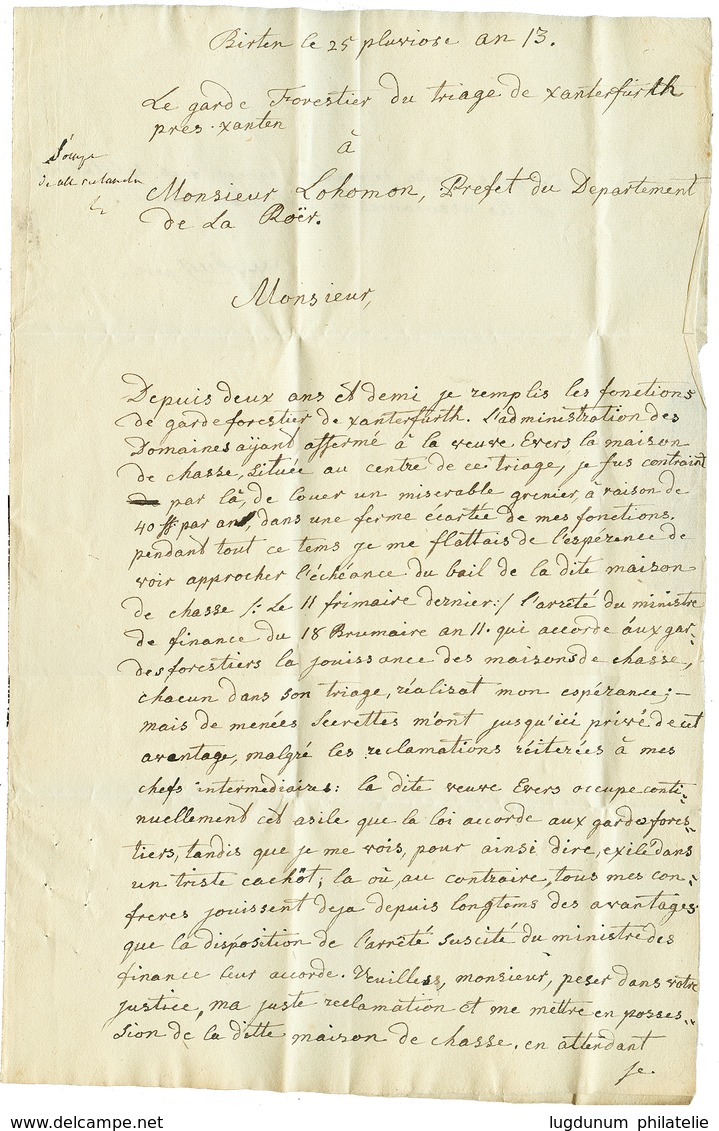 Birten le 25 pluviose an 13.
Le garde Forestier du triage de xanterfürth
pres xanten
à
Monsieur Lohomon, Prefet du Departement
de La Roër.
Monsieur,
Depuis deux ans et demi je remplis les fonctions
de garde forestier de xanterfürth. L'administration des
Domaines aÿant affermé à la veuve Evers la maison
de chasse, située au centre de ce triage, je fus contraint
par là, de louer un miserable grenier, à raison de
40 ff par an, dans une ferme écartée de mes fonctions.
pendant tout ce tems je me flattais de l'espérence de
voir approcher l'échéance du bail de la dite maison
de chasse /: Le 11 frimaire dernier :/ l'arrêté du ministre
de finance du 18 Brumaire an 11. qui accorde áux gar-
des forestiers la jouissance des maisons de chasse,
chacun dans son triage, réalisat mon espérance; –
mais de menées secrettes m'ont jusqu'ici privé de cet
avantage, malgré les reclamations réiterées à mes
chefs intermediaires: la dite veuve Evers occupe conti-
nuellement cet asile que la loi accorde aux gardes fores-
tiers, tandis que je me vois, pour ainsi dire, exilé dans
un triste cachôt; la où, au contraire, tous mes con-
freres jouissent deja depuis longtems des avantages
que la disposition de l'arrêté suscité du ministre des
finance leur accorde. Veuilles, monsieur, peser dans votre
justice, ma juste reclamation et me mettre en posses-
sion de la ditte maison de chasse. en attendant
je.
www.delcampe.net
lugdunum philatelie